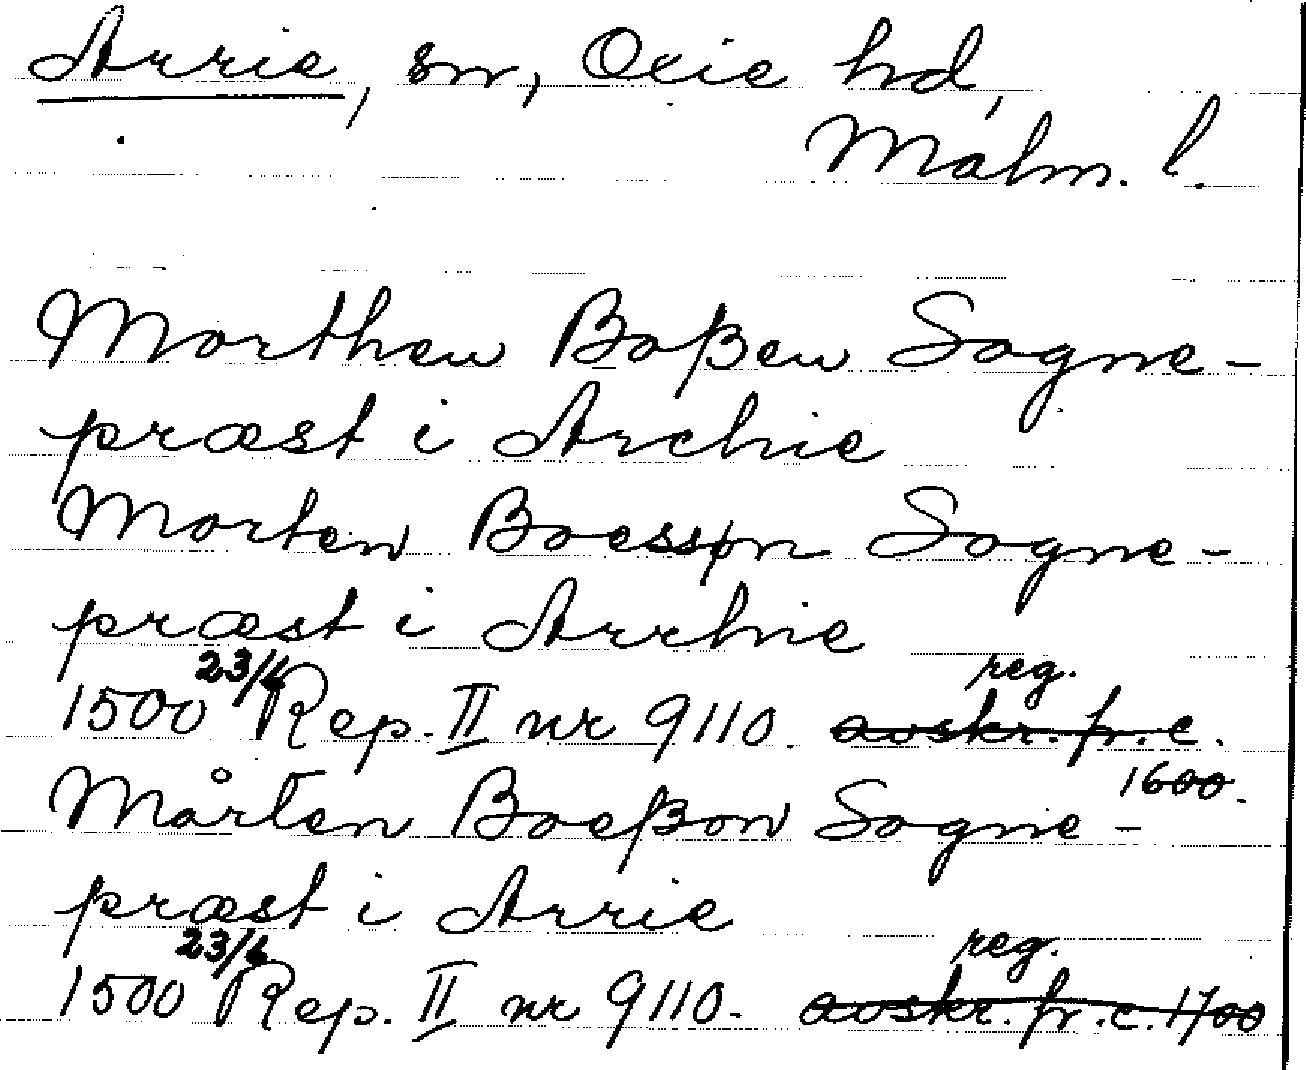 Arrie, sn, Oxie hd,
Malm. l.
Morthen Boßen Sogne-
præst i Archie
Morten Boessøn Sogne-
præst i Arrhie
23/4 reg.
1500 Rep. II nr 9110. avskr. fr. c.
1600.
Mårten Boeßon Sogne-
præst i Arrie
23/4 reg.
1500 Rep. II nr 9110. avskr. fr. c. 1700